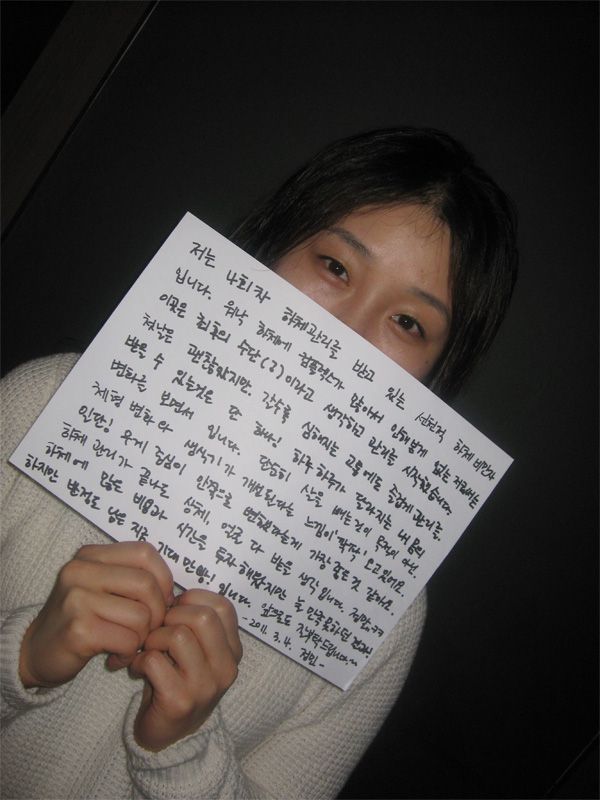 저는 4회차 하체관리를 받고 있는 선천적 하체비만자
입니다. 워낙 하체에 컴플렉스가 많아서 안해본게 없는 저로써는
이곳은 최후의 수단(?)이라고 생각하고 관리를 시작했습니다.
첫날은 괜찮았지만, 갈수록 심해지는 고통에도 즐겁게 관리를
받을 수 있는것은 단 하나! 하루하루가 달라지는 내 몸의
변화를 보면서 입니다. 단순히 살을 빼는것이 목적이 아닌,
체형 변화와 생식기가 개선된다는 느낌이 팍팍! 오고있어요.
인단! 무게 중심이 안쪽으로 변해다는게 가장 좋은것 같아요.
하체 관리가 끝나도 상체, 얼굴 다 받을 생각입니다. 정말,ㅋㅋ
하체에 많은 비용과 시간을 투자해왔지만 늘 만족못하던 결과,
하지만 반정도 남은 지금 기대만땅! 입니다. 앞으로도 잘 부탁드립니다~
-2011. 3. 4. 정민-